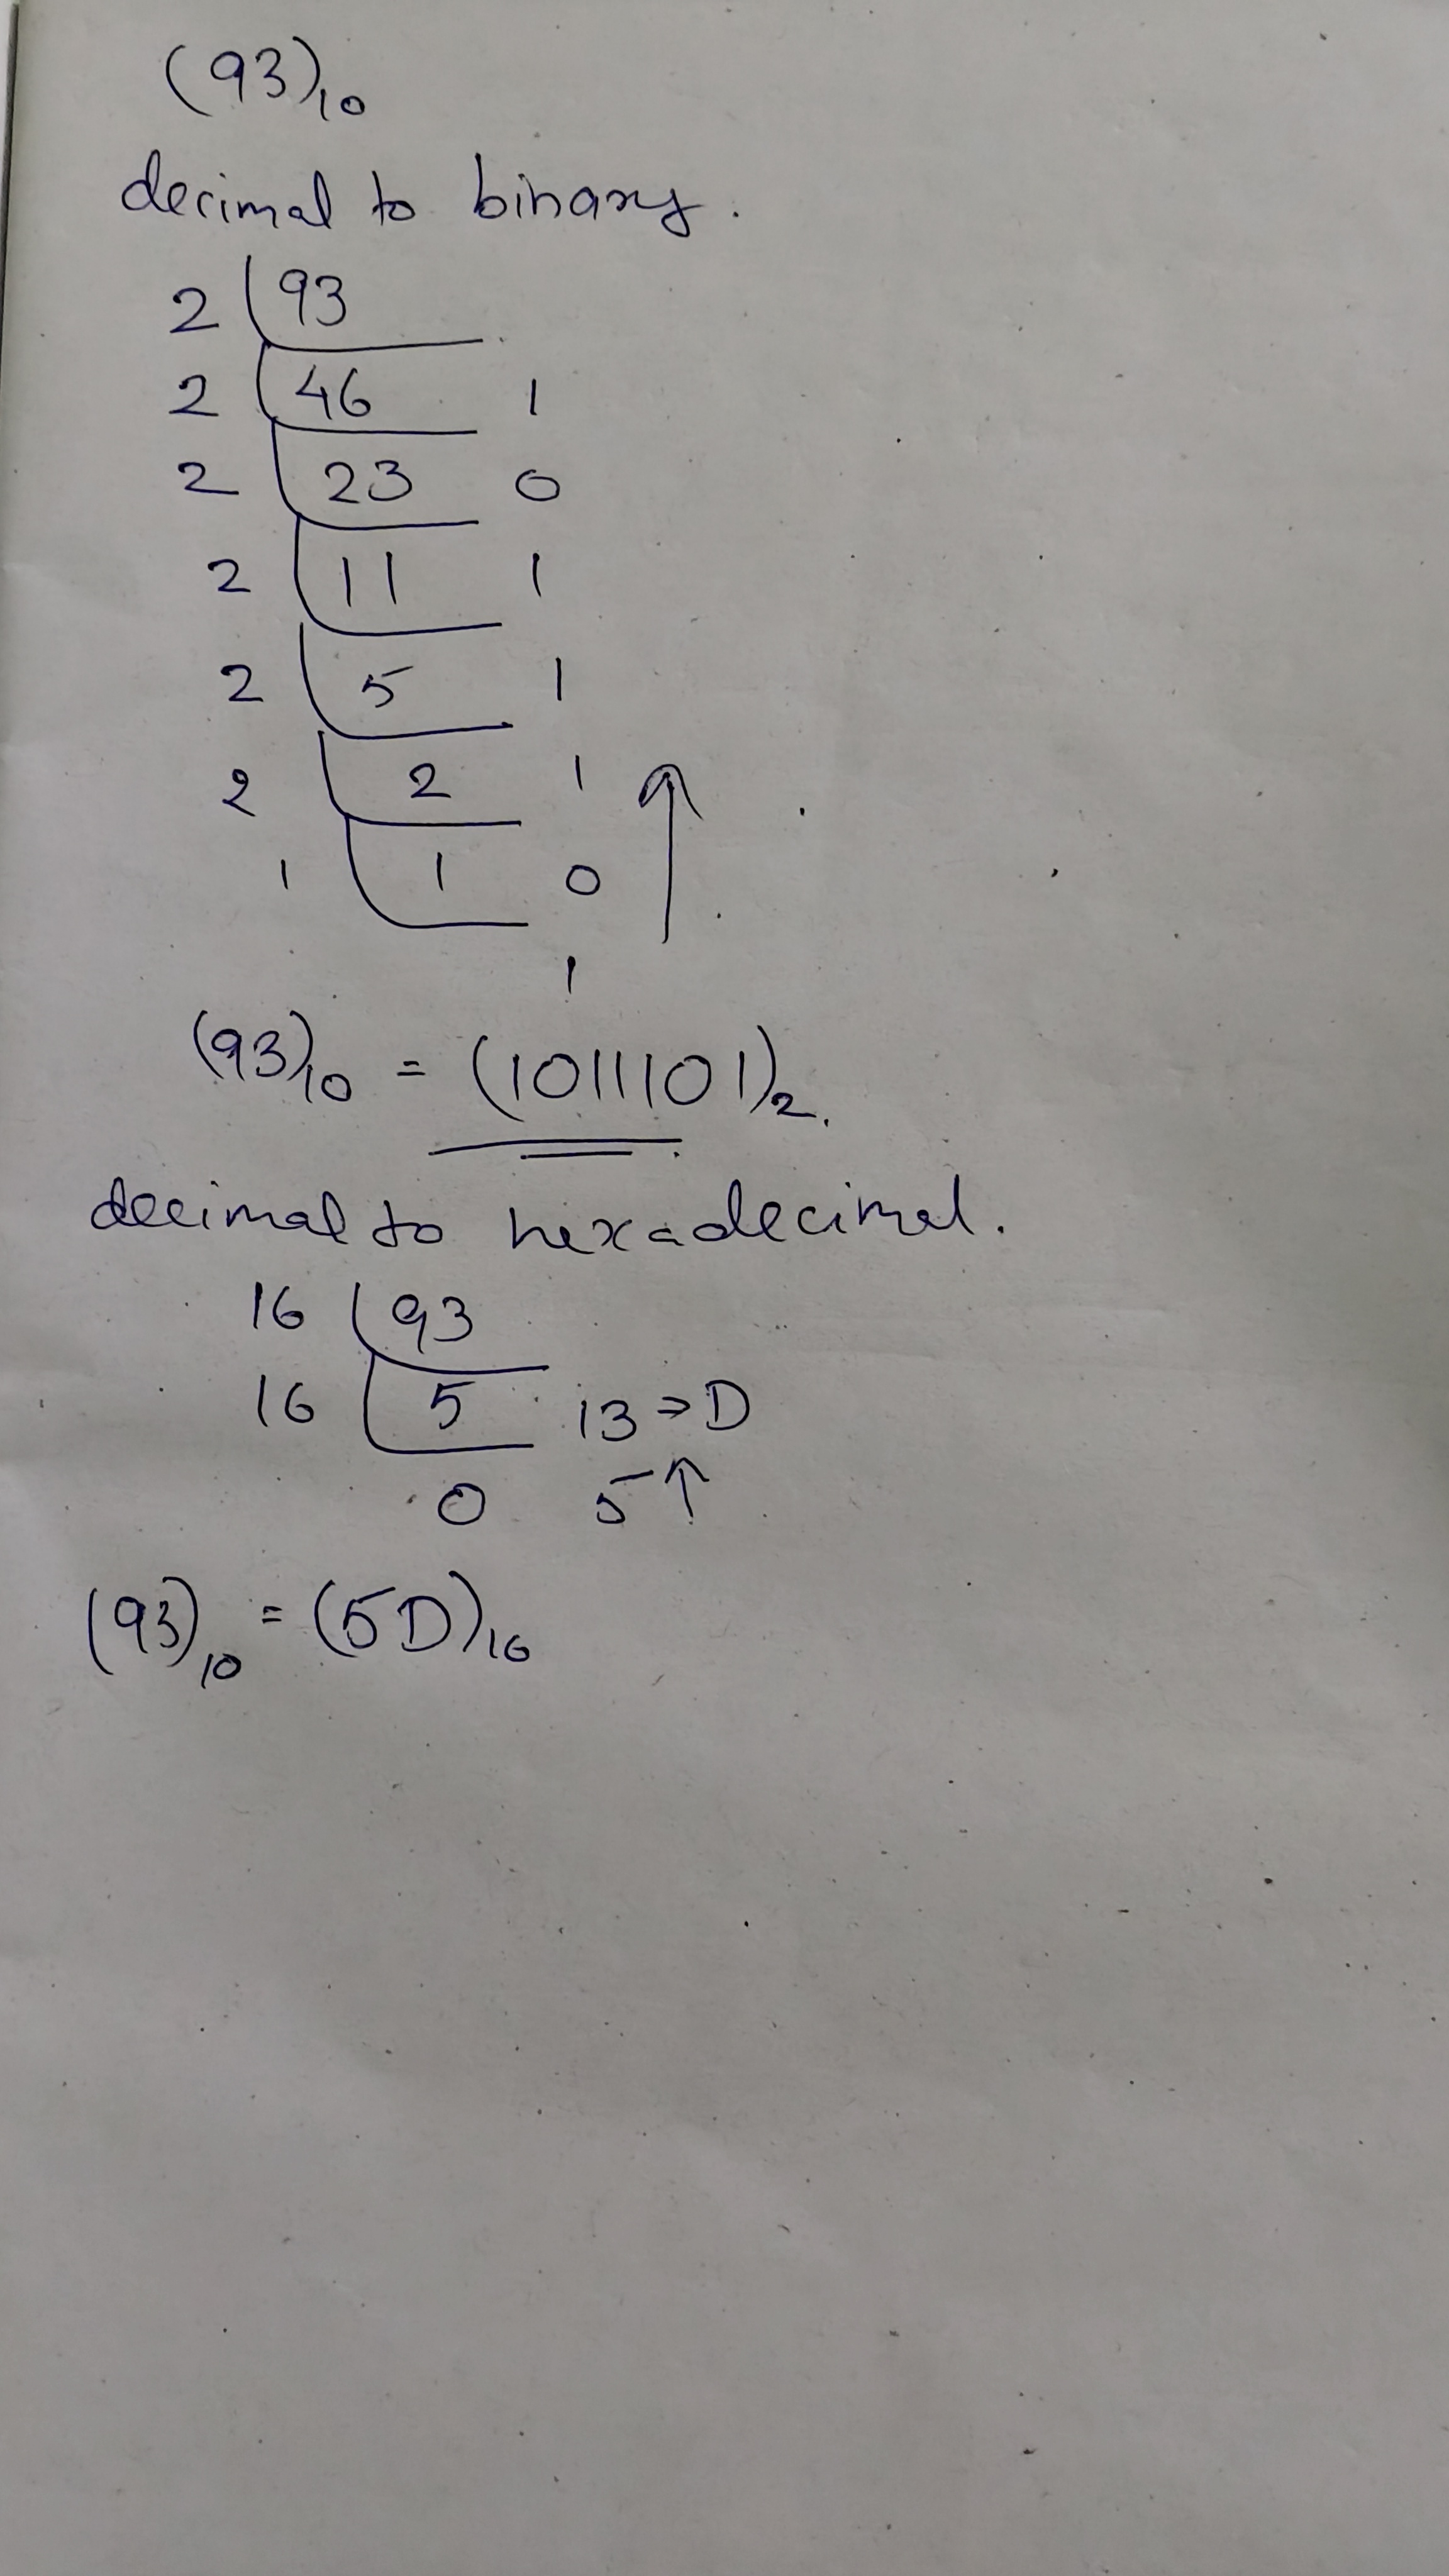 (93)10
decimal to binary.
2 93
2 46 1
2 23 0
2 11 1
2 5 1
2 2 1
1 1 0
1
(93)10 = (1011101)2.
decimal to hexadecimal.
16 93
16 5 13 ⇒ D
0 5 ↑
(93)10 = (5D)16